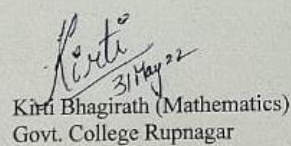 Kirti
31 May 22
Kirti Bhagirath (Mathematics)
Govt. College Rupnagar